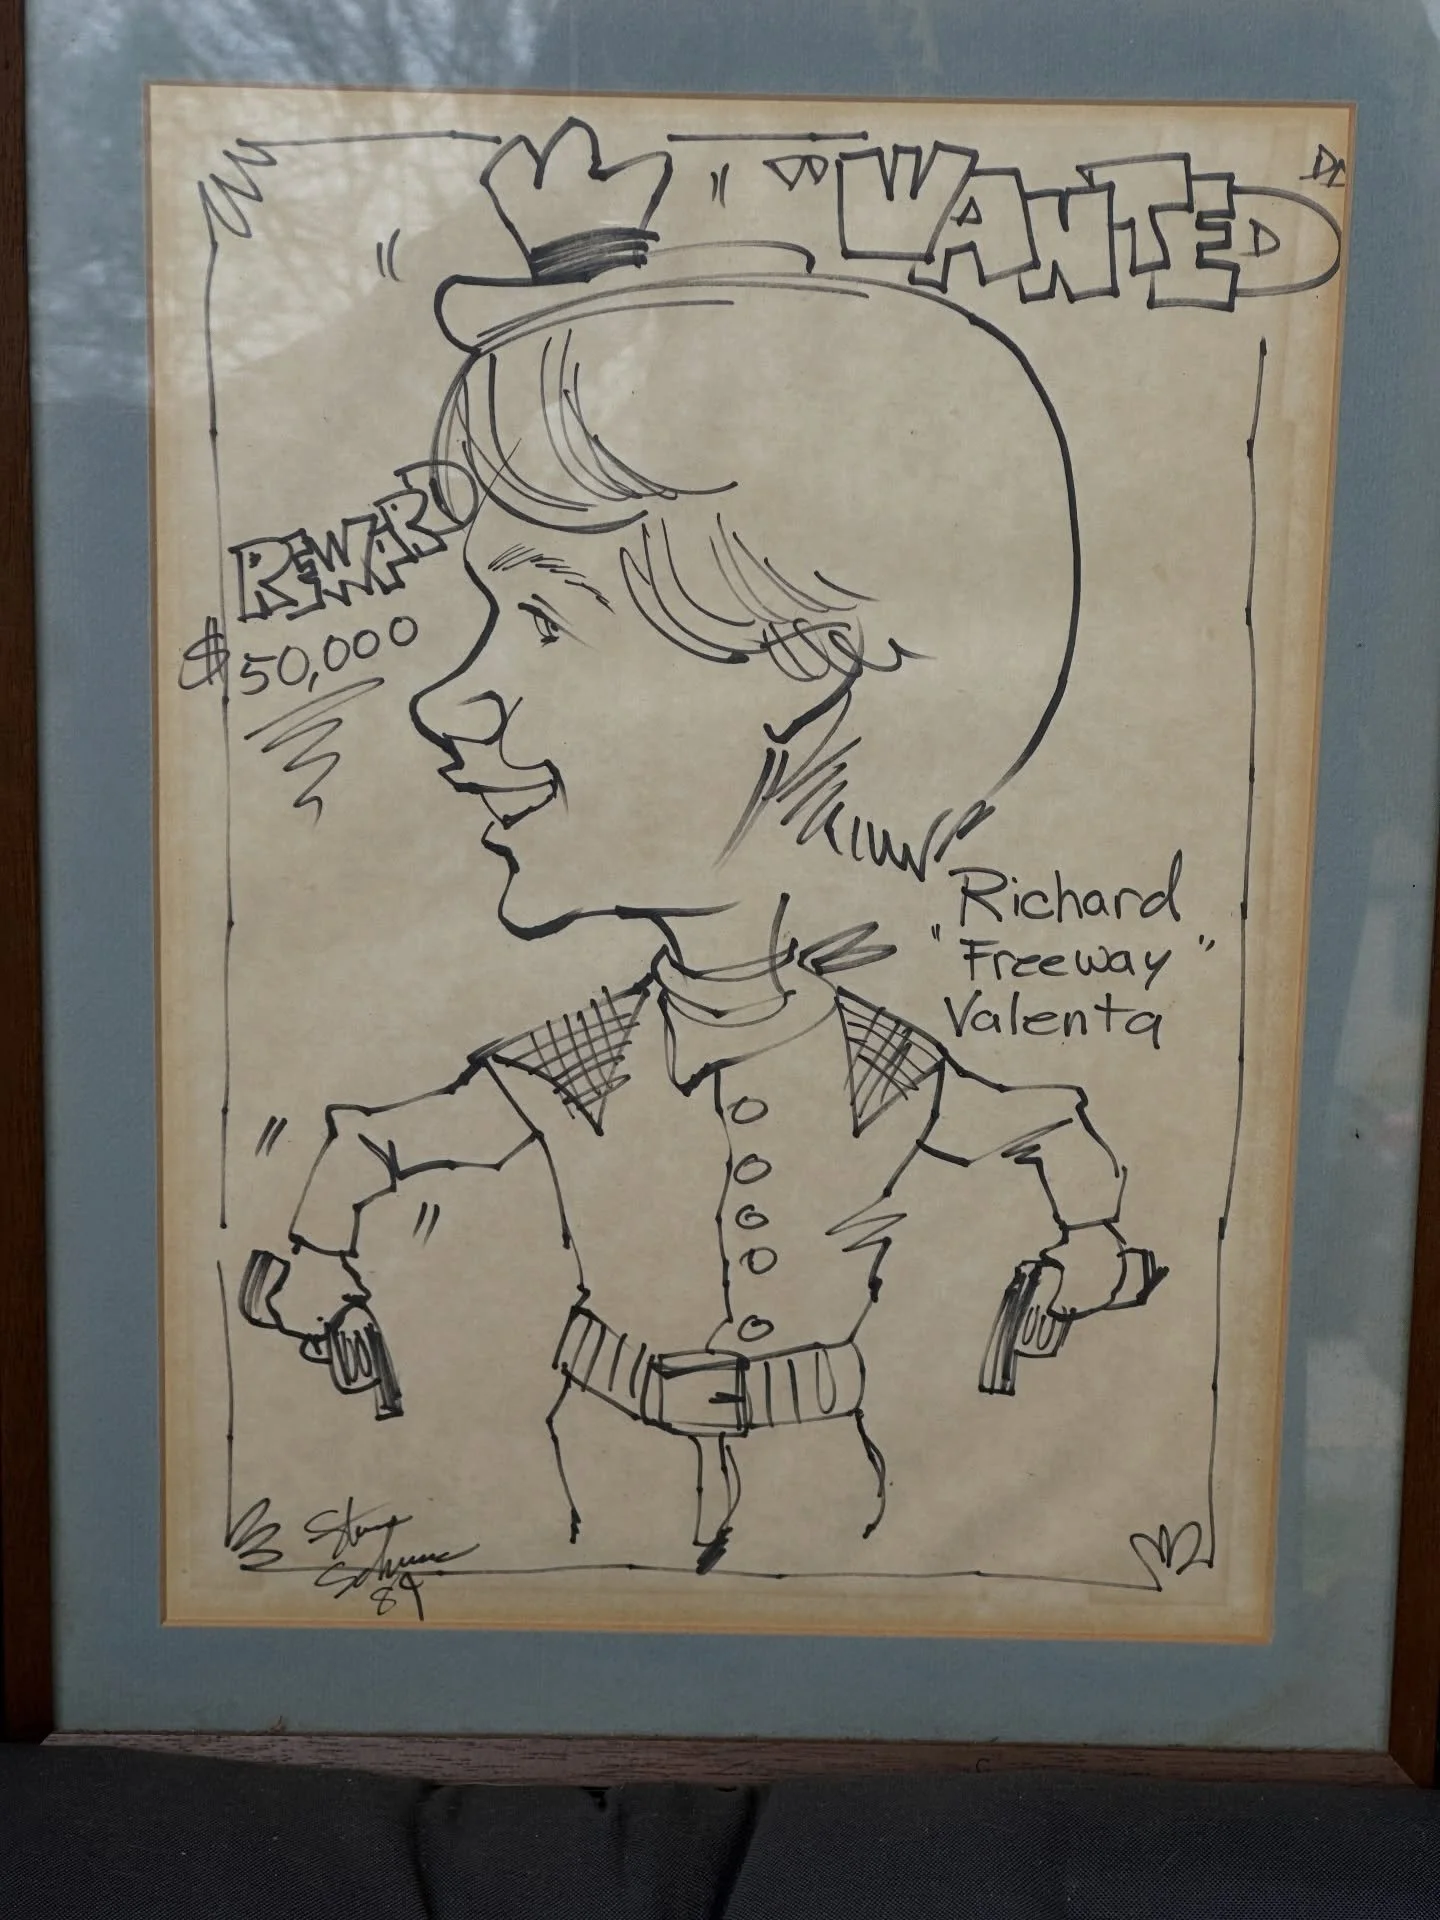 "WANTED"
REWARD
$50,000
Richard
"Freeway"
Valenta
Steve
89